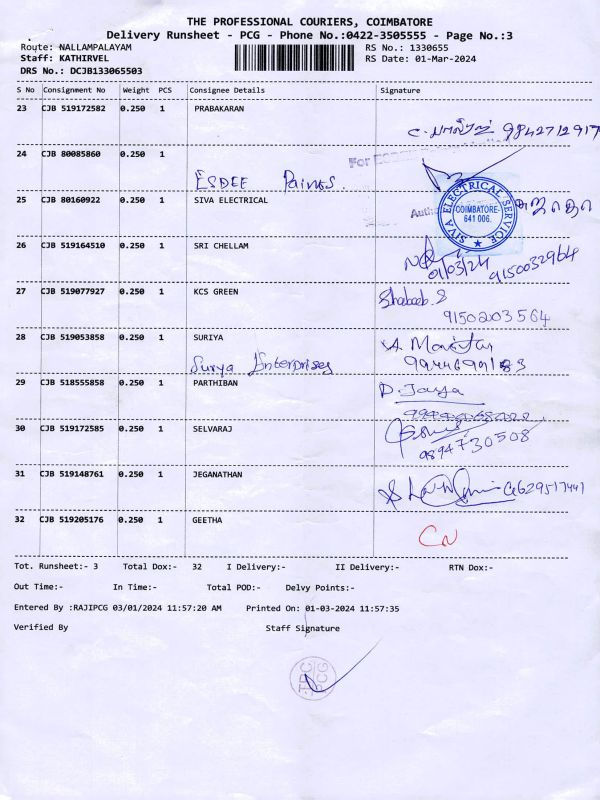 THE PROFESSIONAL COURIERS, COIMBATORE
Delivery Runsheet - PCG - Phone No.:0422-3505555 - Page No.:3
Route: NALLAMPALAYAM
RS No.: 1330655
Staff: KATHIRVEL
RS Date: 01-Mar-2024
DRS No.: DCJB133065503
S No Consignment No Weight PCS Consignee Details Signature
23 CJB 519172582 0.250 1 PRABAKARAN
9842712917
24 CJB 80085860 0.250 1
For
ESDEE Paints.
25 CJB 80160922 0.250 1 SIVA ELECTRICAL
SIVA ELECTRICAL SERVICE
COIMBATORE-
641 006.
26 CJB 519164510 0.250 1 SRI CHELLAM
01/03/24 9150032964
27 CJB 519077927 0.250 1 KCS GREEN
Shabeeb.S
9150203564
28 CJB 519053858 0.250 1 SURIYA
Surya Enterprises
29 CJB 518555858 0.250 1 PARTHIBAN
D.
30 CJB 519172585 0.250 1 SELVARAJ
9894730508
31 CJB 519148761 0.250 1 JEGANATHAN
32 CJB 519205176 0.250 1 GEETHA
CN
Tot. Runsheet:- 3 Total Dox:- 32 I Delivery:- II Delivery:- RTN Dox:-
Out Time:- In Time:- Total POD:- Delvy Points:-
Entered By :RAJIPCG 03/01/2024 11:57:20 AM Printed On: 01-03-2024 11:57:35
Verified By Staff Signature